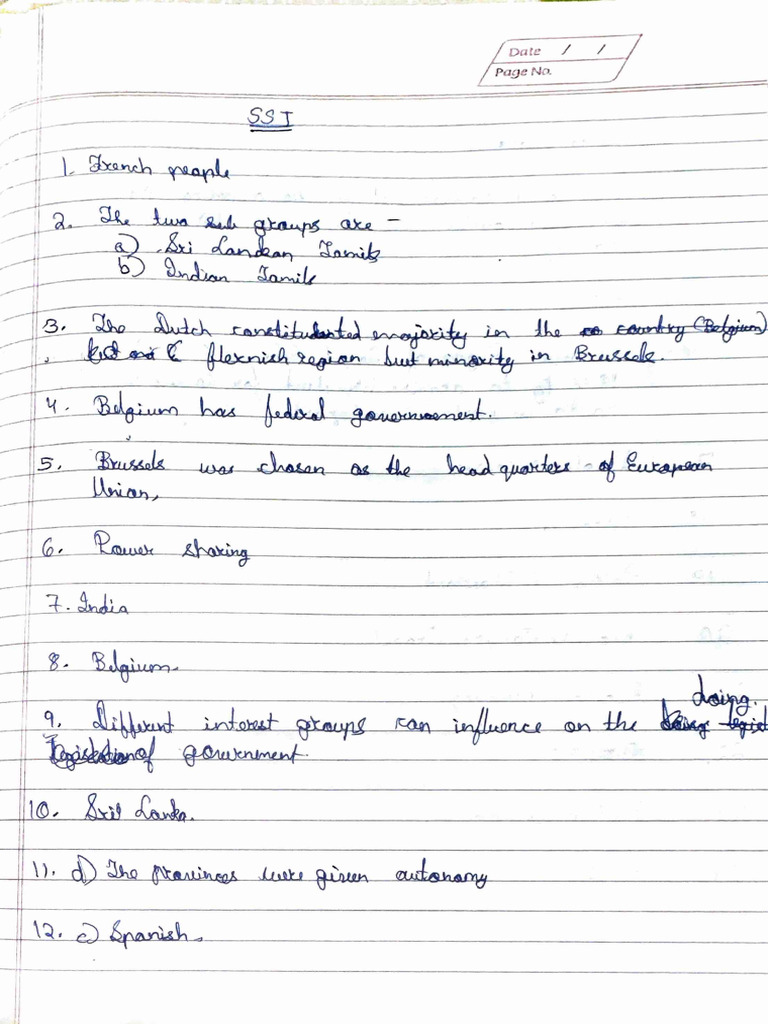 Date / /
Page No.
SST
1. French people
2. The two sub groups are -
a) Sri Lankan Tamils
b) Indian Tamils
3. The Dutch constituted majority in the country (Belgium)
flemish region but minority in Brussels.
4. Belgium has federal government.
5. Brussels was chosen as the headquarters of European
Union,
6. Power sharing
7. India
8. Belgium.
doing.
9. Different interest groups can influence on the
of government.
10. Sri Lanka.
11. d) The provinces were given autonomy
12. c) Spanish.